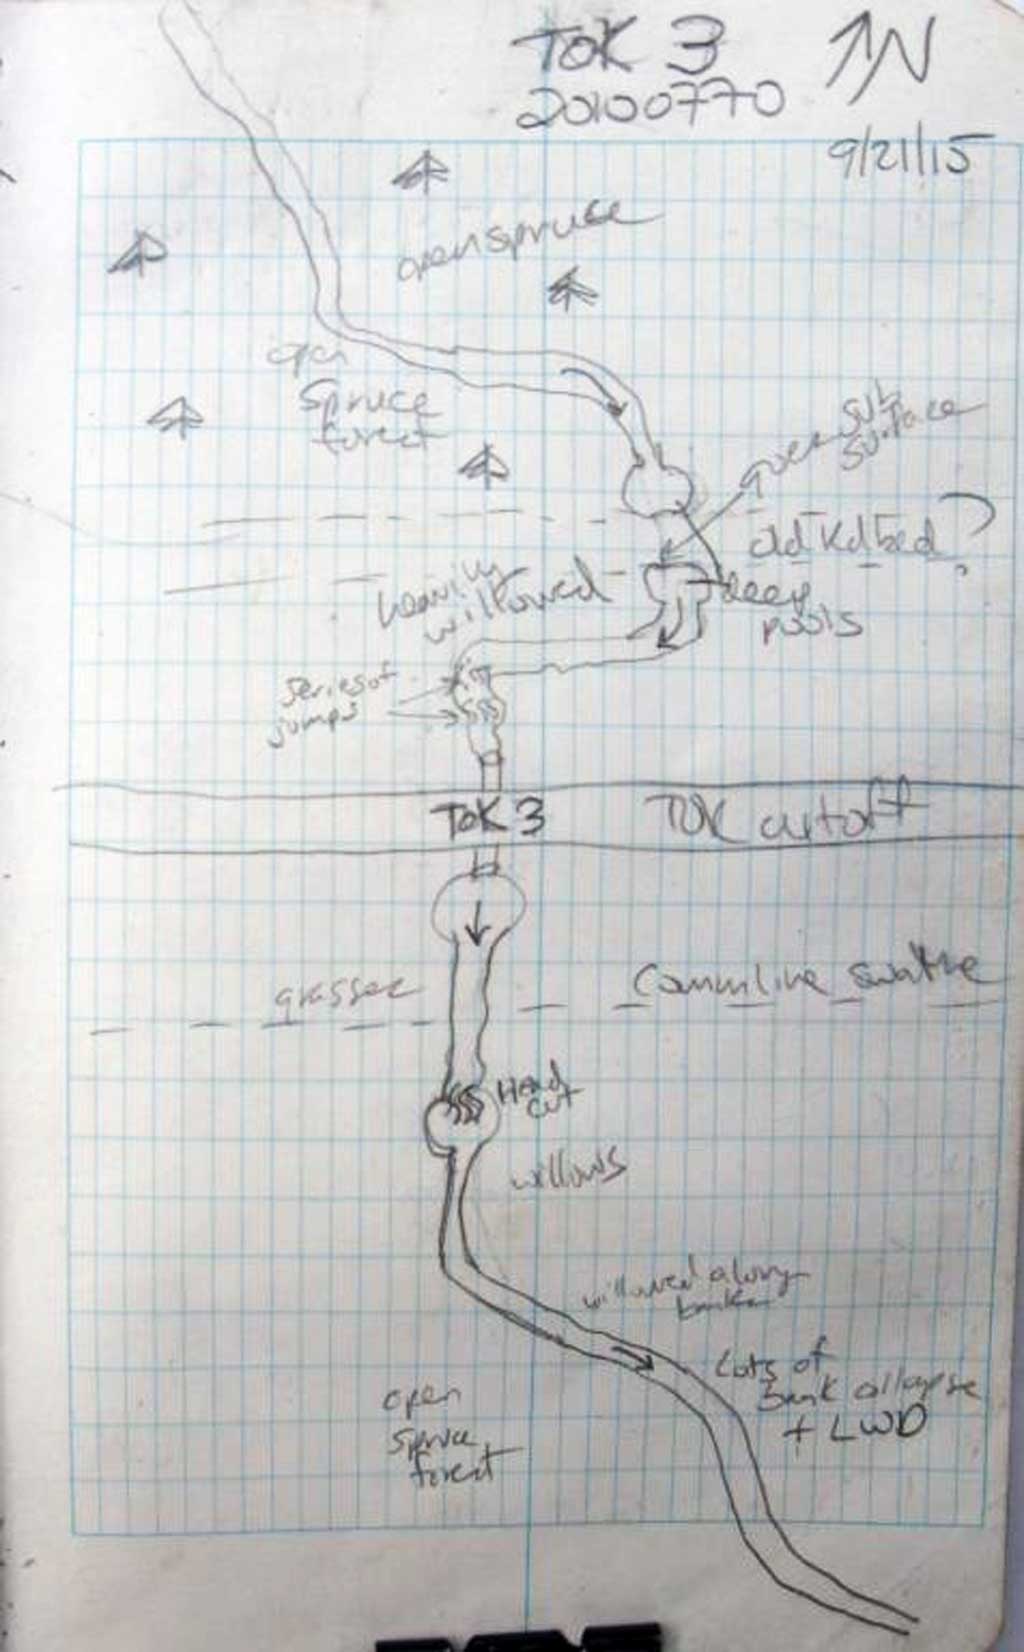 TOK 3
N
20100770
9/21/15
open spruce
open
spruce
forest
goes sub
surface
old Rd bed ?
heavily
willowed
deep
pools
series of
jumps
TOK 3
TOK cutoff
grasses
Commline swathe
Head
cut
willows
willowed along
banks
Lots of
bank collapse
+ LWD
open
spruce
forest